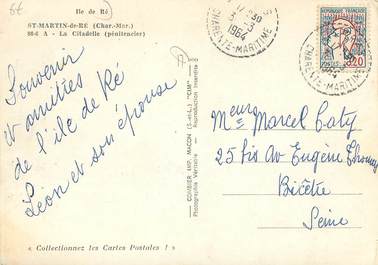 Ile de Ré
ST-MARTIN-de-RE (Char.-Mar.)
88-6 A - La Citadelle (pénitencier)
Souvenir
et amitiés
de l'ile de Ré
Léon et son épouse
« Collectionnez les Cartes Postales ! »
COMBIER IMP. MACON (S.-et-L.) "CIM"
Photographie Véritable - Reproduction Interdite
17 - 30
3 - 9
1964
CHARENTE-MARITIME
REPUBLIQUE FRANÇAISE
0,20
CHARENTE-MARITIME
Marcel Caty
25 bis Av Eugène
Bicêtre
Seine